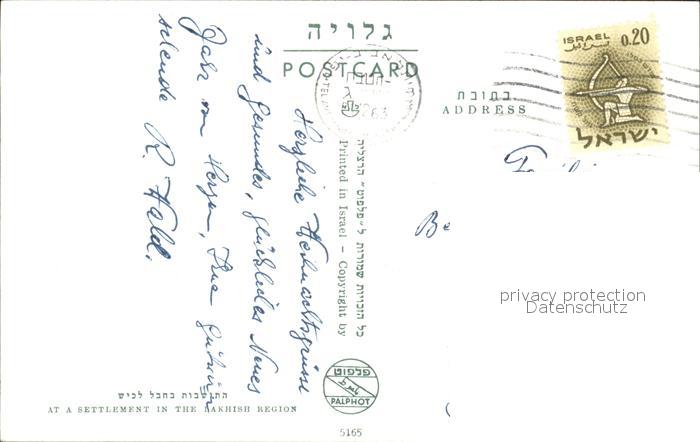 גלויה
POSTCARD
בתובת
ADDRESS
ISRAEL
0.20
ישראל
Herzliche Weihnachtsgrüsse
und gesundes, glückliches Neues
Jahr von Herzen, Ihre
R. Hald.
כל הזכויות שמורות ל"פלפוט" הרצליה
Printed in Israel – Copyright by
פלפוט
PALPHOT
התישבות בחבל לכיש
AT A SETTLEMENT IN THE LAKHISH REGION
5165
Be
privacy protection
Datenschutz